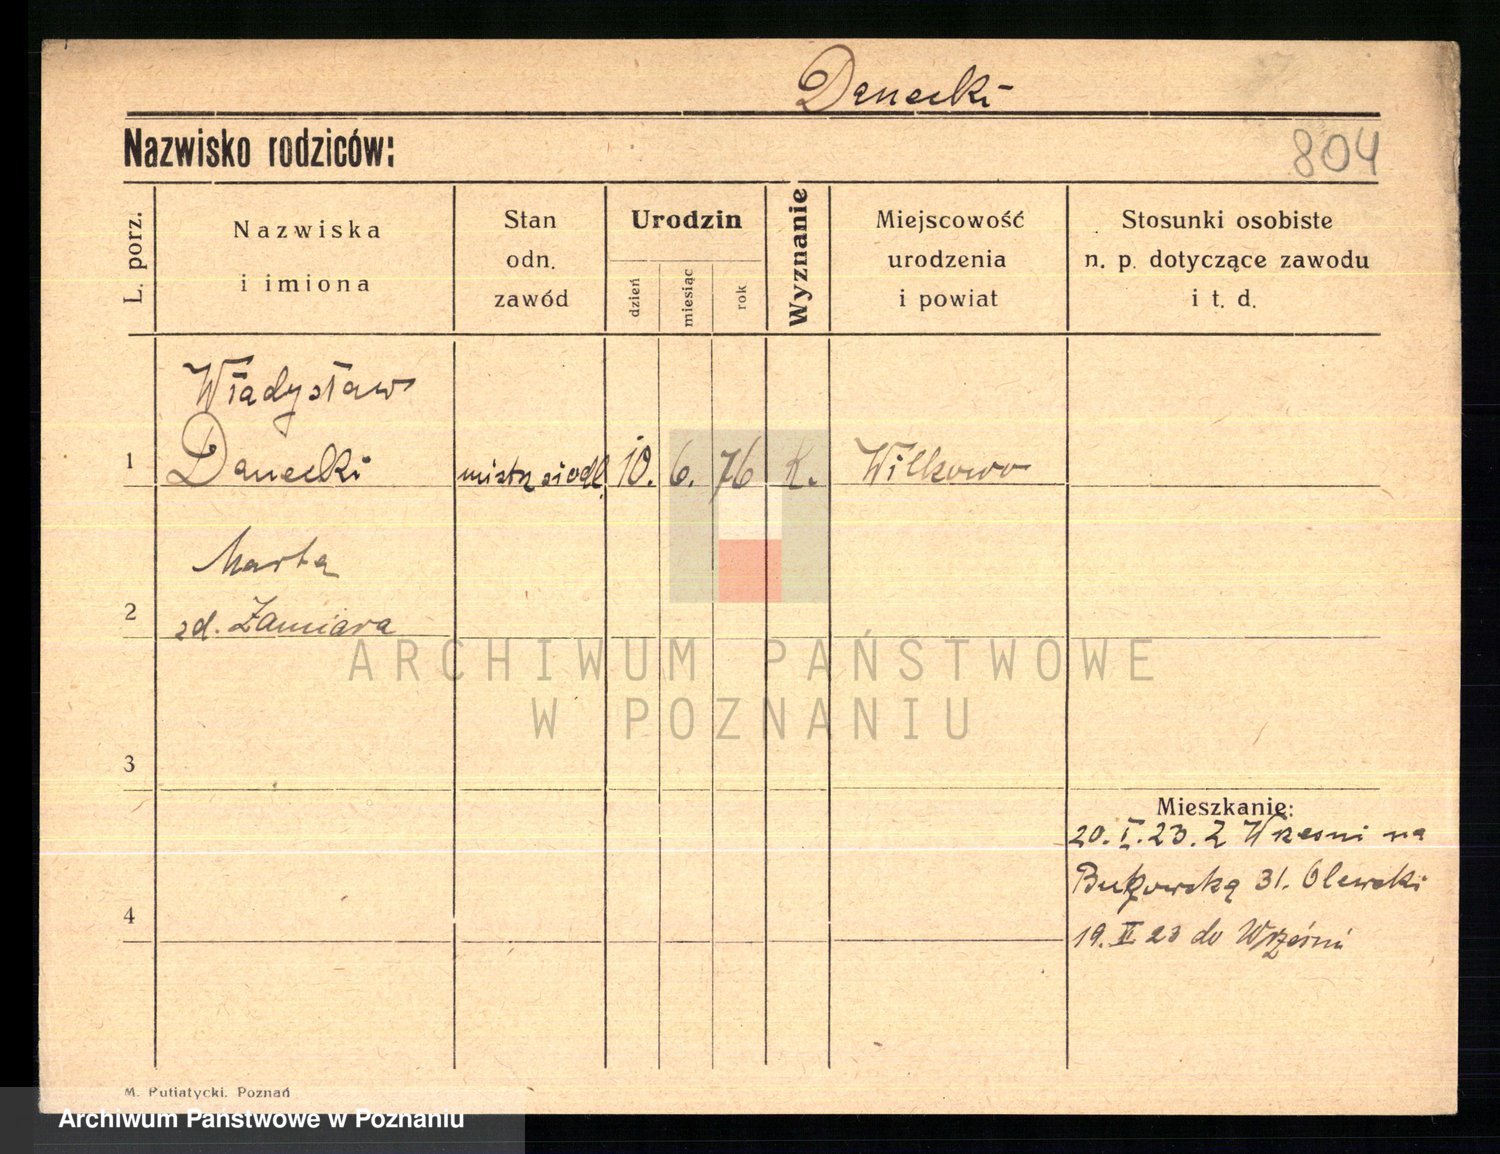 Danecki
Nazwisko rodziców:
804
L. porz.
Nazwiska
i imiona
Stan
odn.
zawód
Urodzin
dzień
miesiąc
rok
Wyznanie
Miejscowość
urodzenia
i powiat
Stosunki osobiste
n. p. dotyczące zawodu
i t. d.
Władysław
1 Danecki mistrz siodl. 10. 6. 76 k. Wilkowo
Marta
2 zd. Zamiara
ARCHIWUM PAŃSTWOWE
W POZNANIU
3
Mieszkanie:
20. I. 23. Z Wresni na
Bukowską 31. Olewski
4
19. II 23 do Wrześni
M. Putiatycki, Poznań
Archiwum Państwowe w Poznaniu